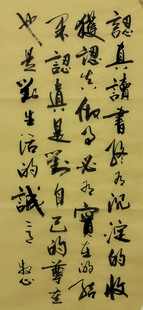 認真讀書終有沉淀的收
獲認真做事必有實在的結
果認真是對自己的尊重
也是對生活的誠意